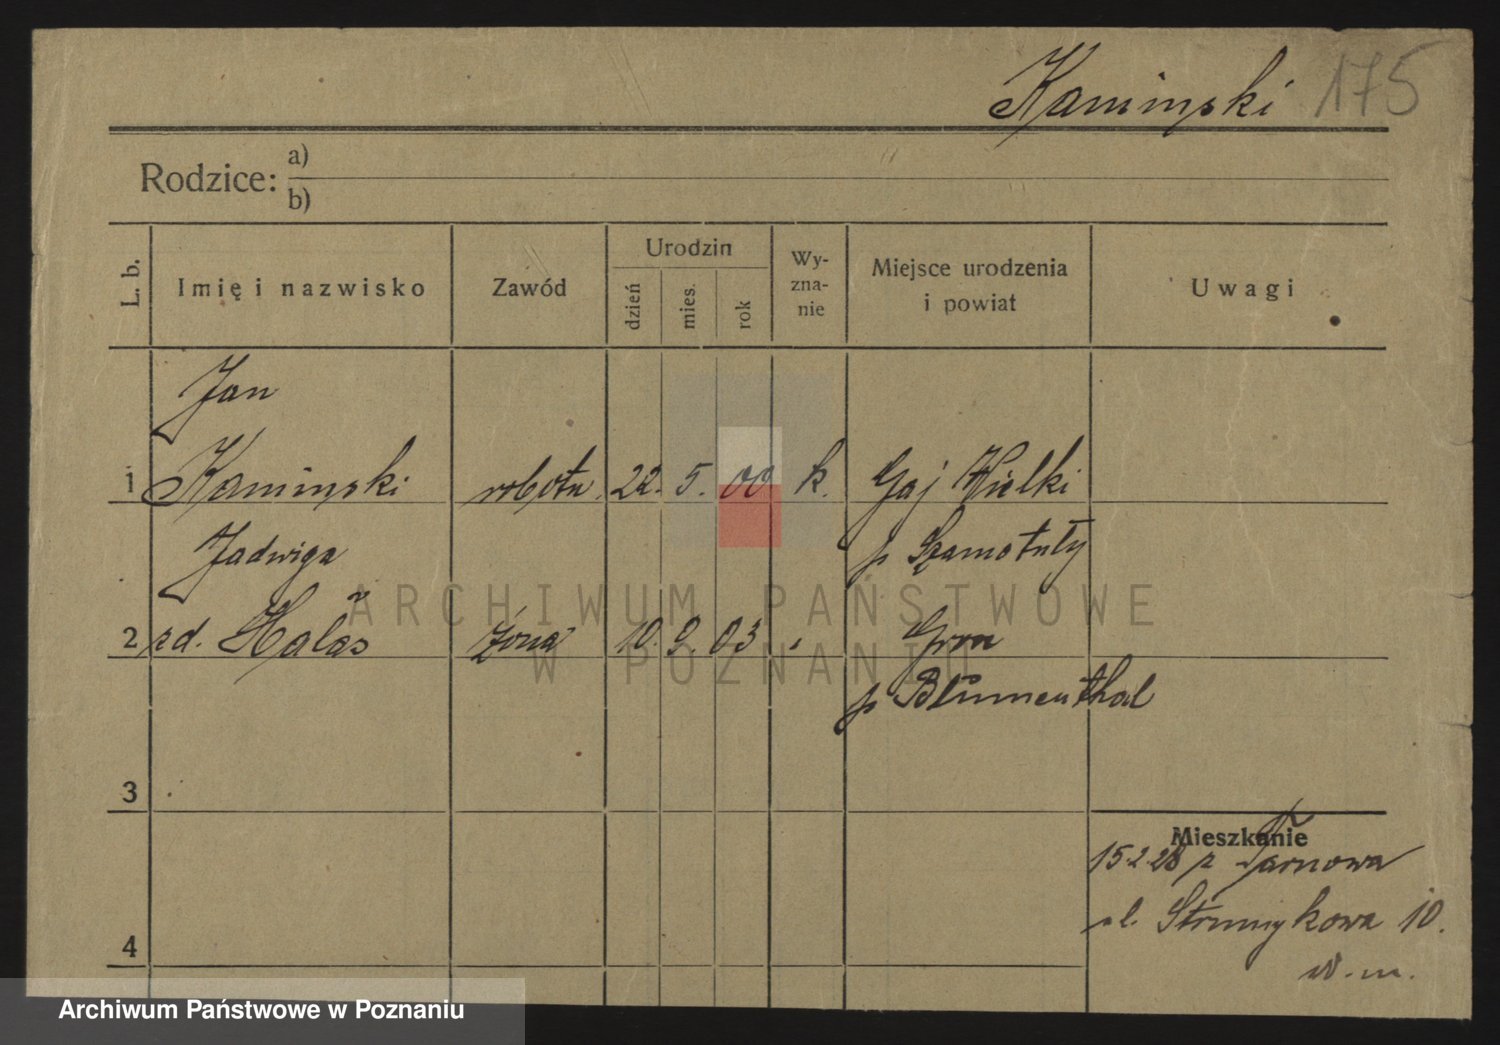 Kaminski 175
Rodzice: a)
b)
L. b.
Imię i nazwisko
Zawód
Urodzin
dzień
mies.
rok
Wy-
zna-
nie
Miejsce urodzenia
i powiat
Uwagi
Jan
1 Kaminski robotn. 22. 5. 00 k. Gaj Wielki
p Szamotuły
Jadwiga
2 zd. Halas żona 10. 9. 03 Gron
p Blumenthal
3
4
Mieszkanie
15.2.28 z Tarnowa
ul. Strumykowa 10.
w.m.
ARCHIWUM PAŃSTWOWE
W POZNANIU
Archiwum Państwowe w Poznaniu